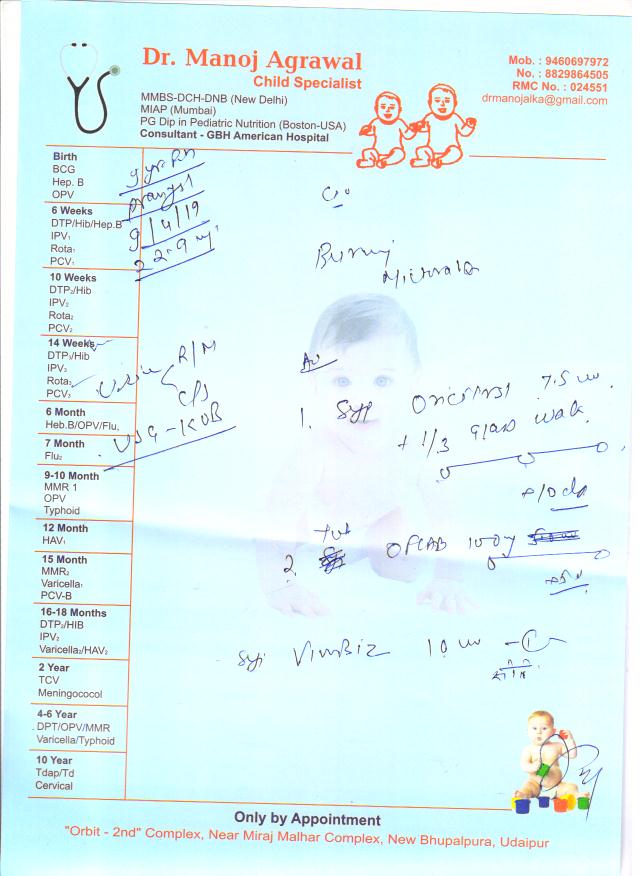 Dr. Manoj Agrawal
Child Specialist
MMBS-DCH-DNB (New Delhi)
MIAP (Mumbai)
PG Dip in Pediatric Nutrition (Boston-USA)
Consultant - GBH American Hospital
Mob. : 9460697972
No. : 8829864505
RMC No. : 024551
drmanojalka@gmail.com
Birth
BCG
Hep. B
OPV
6 Weeks
DTP/Hib/Hep.B
IPV₁
Rota₁
PCV₁
9/4/19
10 Weeks
DTP₂/Hib
IPV₂
Rota₂
PCV₂
14 Weeks
DTP₃/Hib
IPV₃
Rota₃
PCV₃
Urine R/M
C/S
USG-KUB
6 Month
Heb.B/OPV/Flu₁
7 Month
Flu₂
9-10 Month
MMR 1
OPV
Typhoid
12 Month
HAV₁
15 Month
MMR₂
Varicella₁
PCV-B
16-18 Months
DTP₂/HIB
IPV₂
Varicella₂/HAV₂
2 Year
TCV
Meningococol
4-6 Year
DPT/OPV/MMR
Varicella/Typhoid
10 Year
Tdap/Td
Cervical
C/o
Burning
Adv
1. Syp 7.5
+ 1/3 glass
2. OFLAB 100
10
Only by Appointment
"Orbit - 2nd" Complex, Near Miraj Malhar Complex, New Bhupalpura, Udaipur